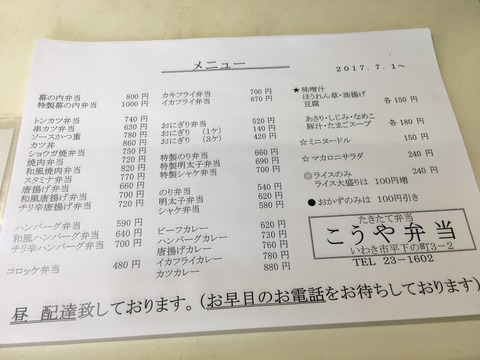 メニュー
2017.7.1～
幕の内弁当 800 円
特製幕の内弁当 1000 円
トンカツ弁当 740 円
串カツ弁当 630 円
ソースかつ重
カツ丼
ショウガ焼弁当 750 円
焼肉弁当 720 円
和風焼肉弁当 820 円
スタミナ弁当
唐揚げ弁当 660 円
和風唐揚げ弁当 700 円
チリ辛唐揚げ弁当
ハンバーグ弁当 590 円
和風ハンバーグ弁当 640 円
チリ辛ハンバーグ弁当
コロッケ弁当 480 円
カキフライ弁当 700 円
イカフライ弁当 670 円
おにぎり弁当 520 円
おにぎり (1ケ) 140 円
おにぎり (3ケ) 420 円
特製のり弁当
特製明太子弁当
特製シャケ弁当
のり弁当
明太子弁当
シャケ弁当
ビーフカレー
ハンバーグカレー
唐揚げカレー
イカフライカレー
カツカレー 880 円
★味噌汁
ほうれん草・油揚げ
豆腐 各 150 円
あさり・しじみ・なめこ
豚汁・たまごスープ 各 180 円
☆ミニヌードル 150 円
☆マカロニサラダ 240 円
◎ライスのみ 240 円
ライス大盛りは 100円増
●おかずのみは 100円引き
たきたて弁当
こうや弁当
いわき市平下の町3－2
TEL 23-1602
昼 配達致しております。(お早目のお電話をお待ちしております)